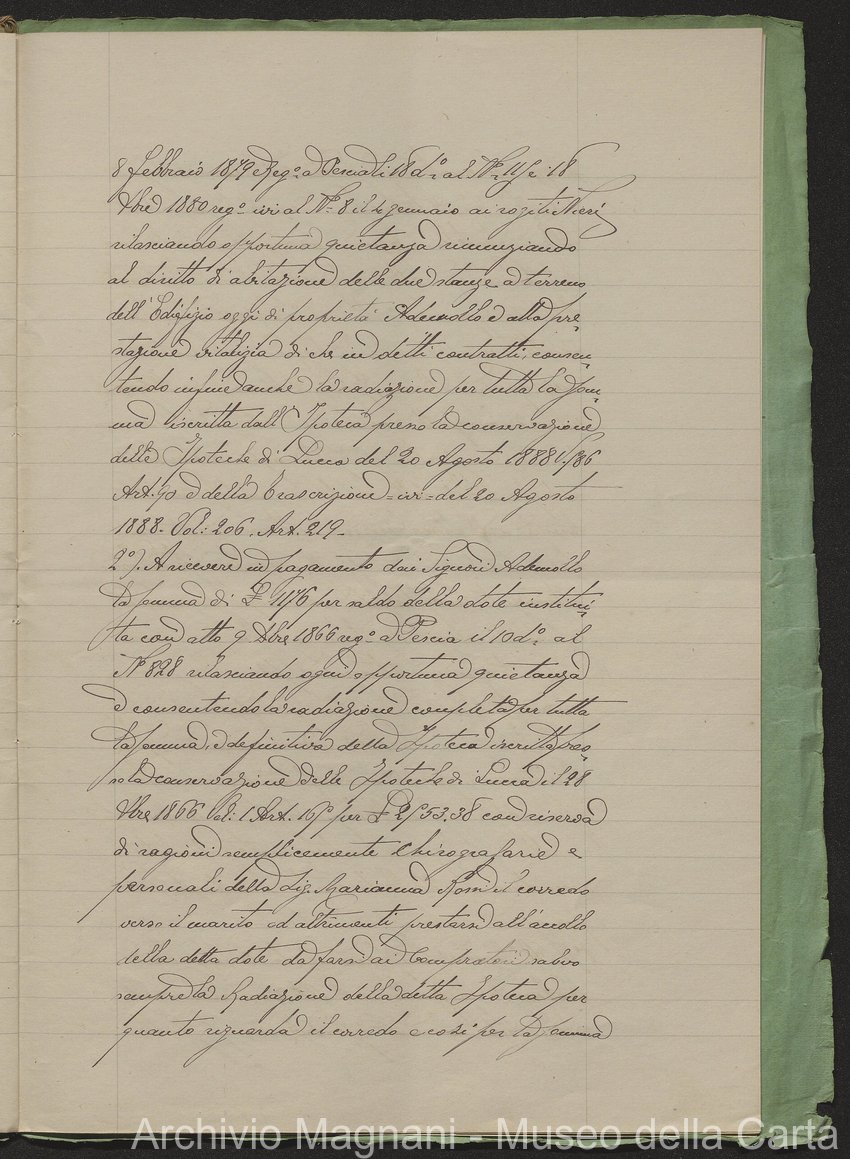 8 febbraio 1879 Reg.o a Pescia li 18 d.o al N.o 115 e 18
Xbre 1880 reg.o ivi al N.o 8 il 4 gennaio ai rogiti Nieri
rilasciando opportuna quietanza rinunziando
al diritto di abitazione delle due stanze a terreno
dell'Edifizio oggi di proprietà Ademollo e alla pre-
stazione vitalizia di che in detti contratti, consen-
tendo infine anche la radiazione per tutta la som-
ma iscritta dall'Ipoteca presso la conservazione
delle Ipoteche di Lucca del 20 Agosto 1888
Art. 90 e della trascrizione = ivi = del 20 Agosto
1888. Vol: 206. Art. 219.
2o). A ricevere in pagamento dai Signori Ademollo
la somma di £ 1176 per saldo della dote institui-
ta con atto 9 Xbre 1866 reg.o a Pescia il 10 d.o al
No 828 rilasciando ogni opportuna quietanza
e consentendo la radiazione completa per tutta
la somma, e definitiva della Ipoteca iscritta pres-
so la conservazione delle Ipoteche di Lucca il 28
Xbre 1866 Vol: Art. per £ 2553.38 con riserva
di ragioni semplicemente Chirografarie e
personali della Sig. Marianna Rossi il corredo
verso il marito ed altrimenti prestarsi all'accollo
della detta dote da farsi ai Compratori salvo
sempre la Radiazione della detta Ipoteca per
quanto riguarda il corredo e così per la somma
Archivio Magnani - Museo della Carta